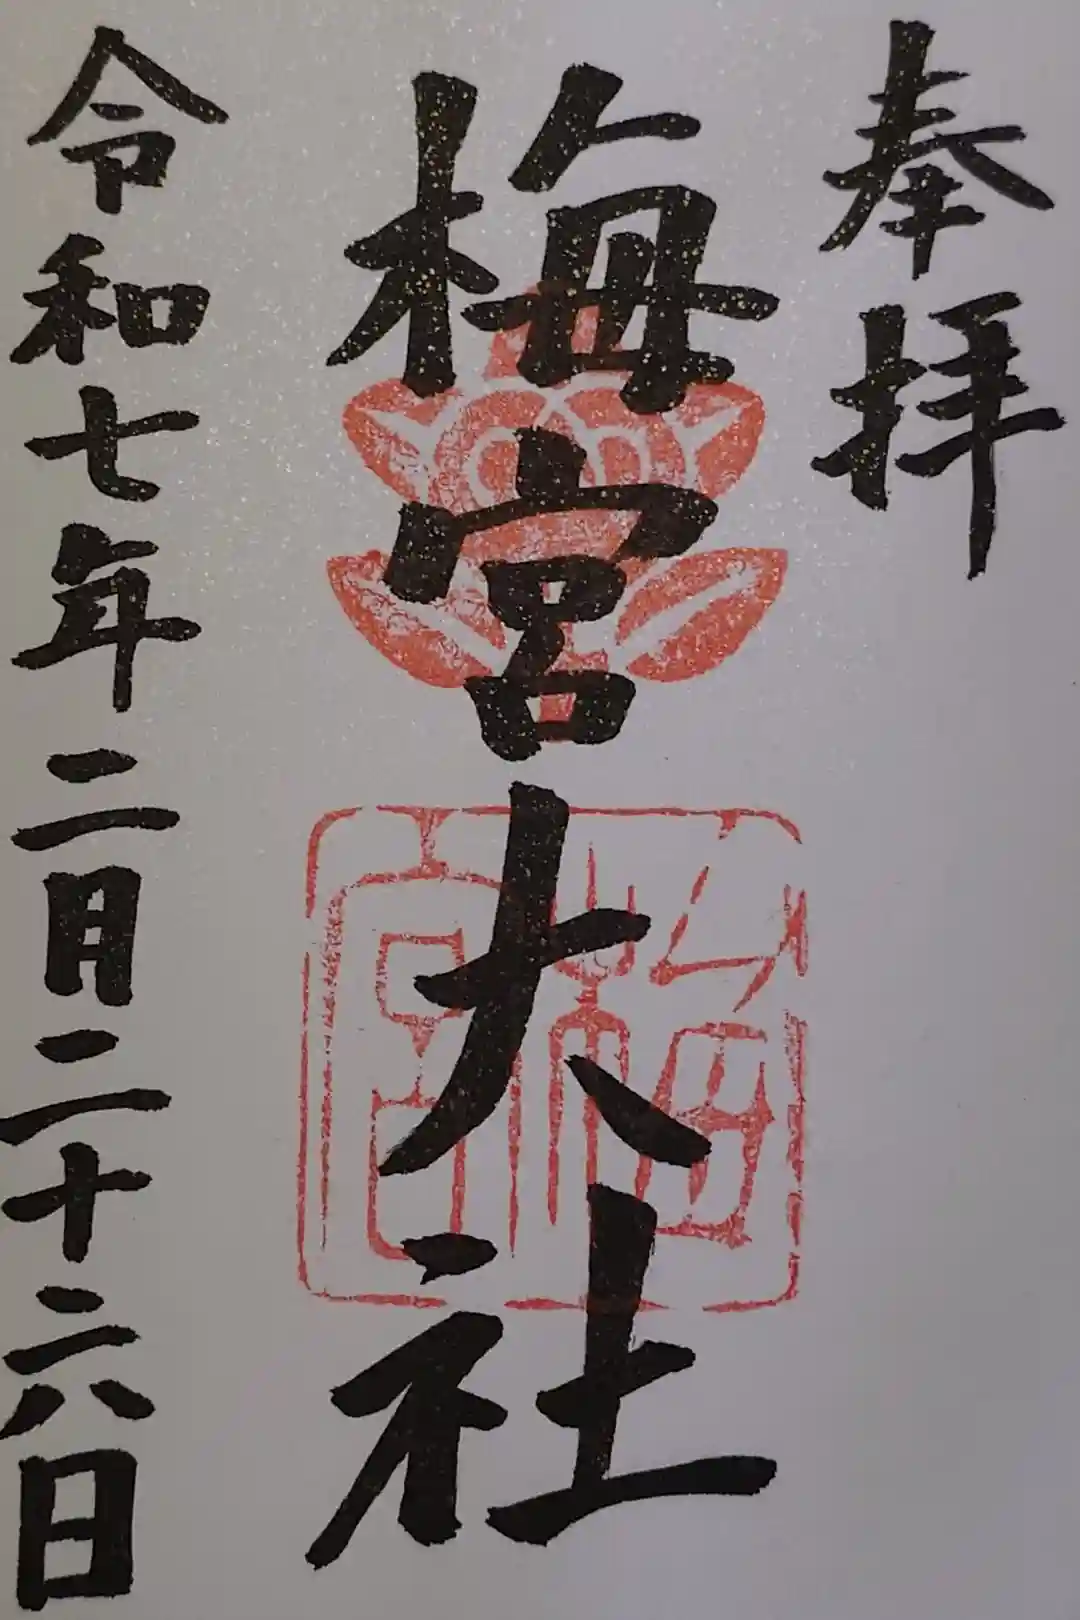 奉拝
梅宮大社
梅宮
令和七年二月二十六日